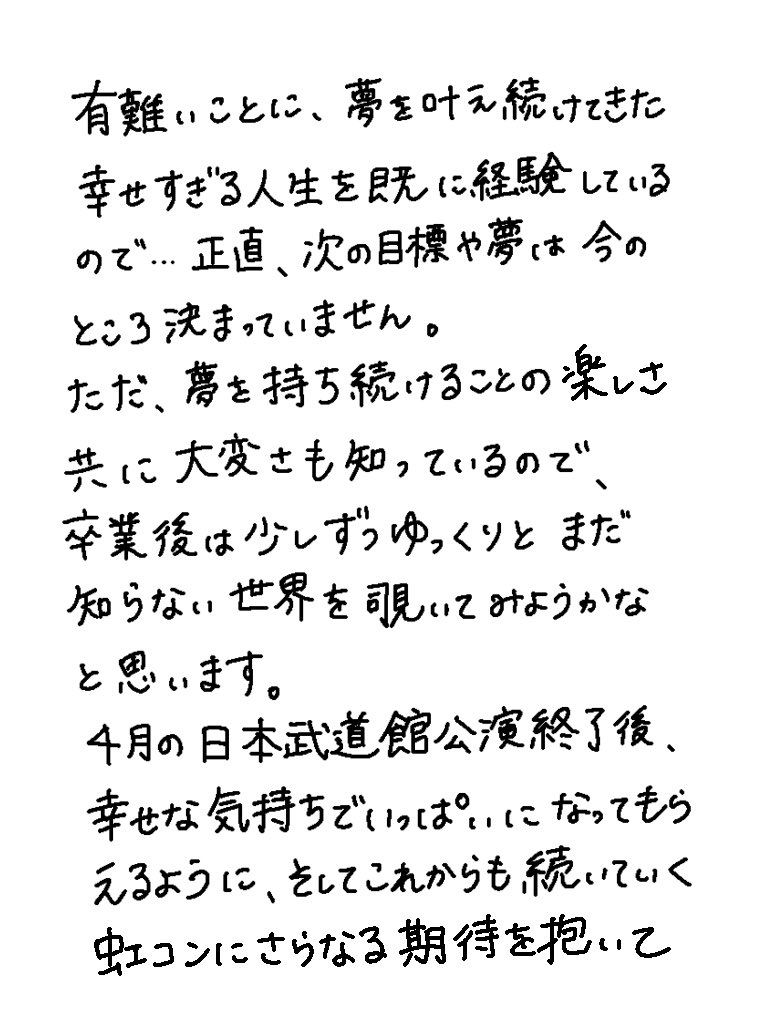 有難いことに、夢を叶え続けてきた
幸せすぎる人生を既に経験している
ので…正直、次の目標や夢は今の
ところ決まっていません。
ただ、夢を持ち続けることの楽しさ
共に大変さも知っているので、
卒業後は少しずつゆっくりとまだ
知らない世界を覗いてみようかな
と思います。
4月の日本武道館公演終了後、
幸せな気持ちでいっぱいになってもら
えるように、そしてこれからも続いていく
虹コンにさらなる期待を抱いて